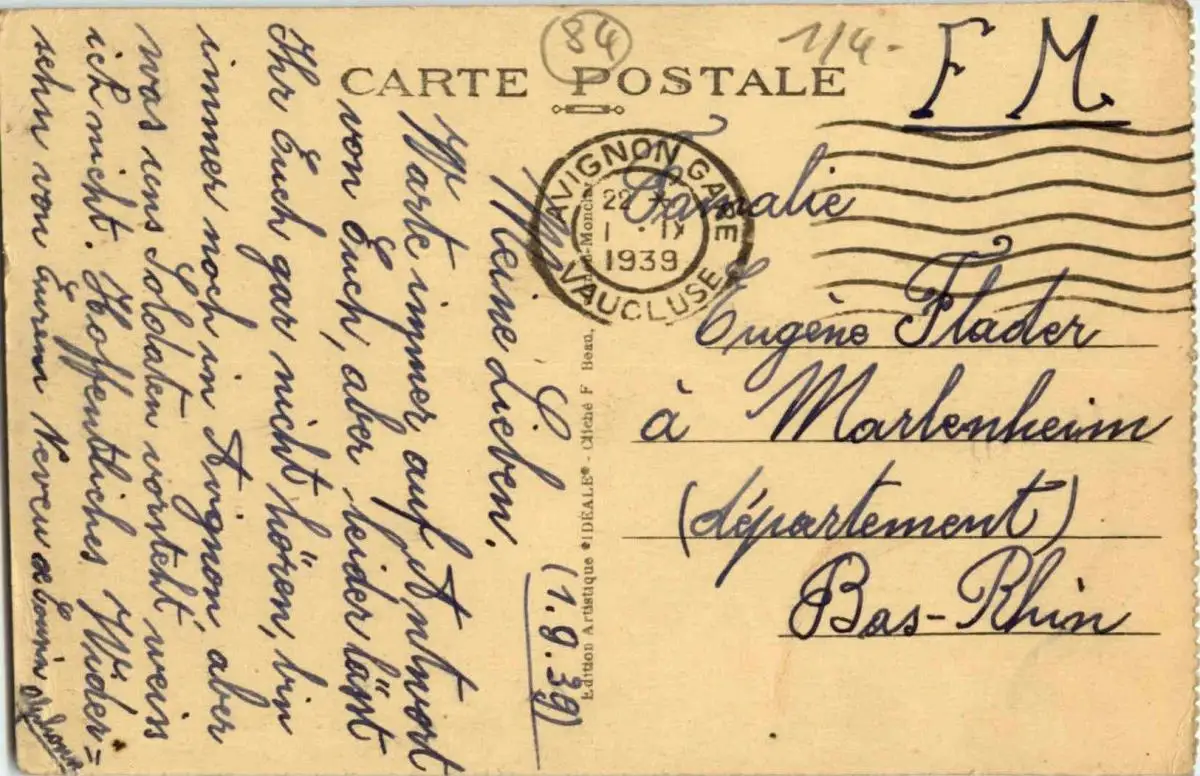 84
1/4.-
F M
CARTE POSTALE
AVIGNON GARE
22
1 . IX
1939
VAUCLUSE
Familie
Eugène Flader
à Marlenheim
(département)
Bas-Rhin
Edition Artistique "IDEALE" - Cliché F Beau,
(1.9.39)
Meine Lieben.
Warte immer auf Antwort
von Euch, aber leider läszt
Ihr Euch gar nicht hören, bin
immer noch in Avignon, aber
was uns Soldaten vorsteht weis
ich nicht. Hoffentliches Wider=
sehn von Eurem Neveu a Cousin